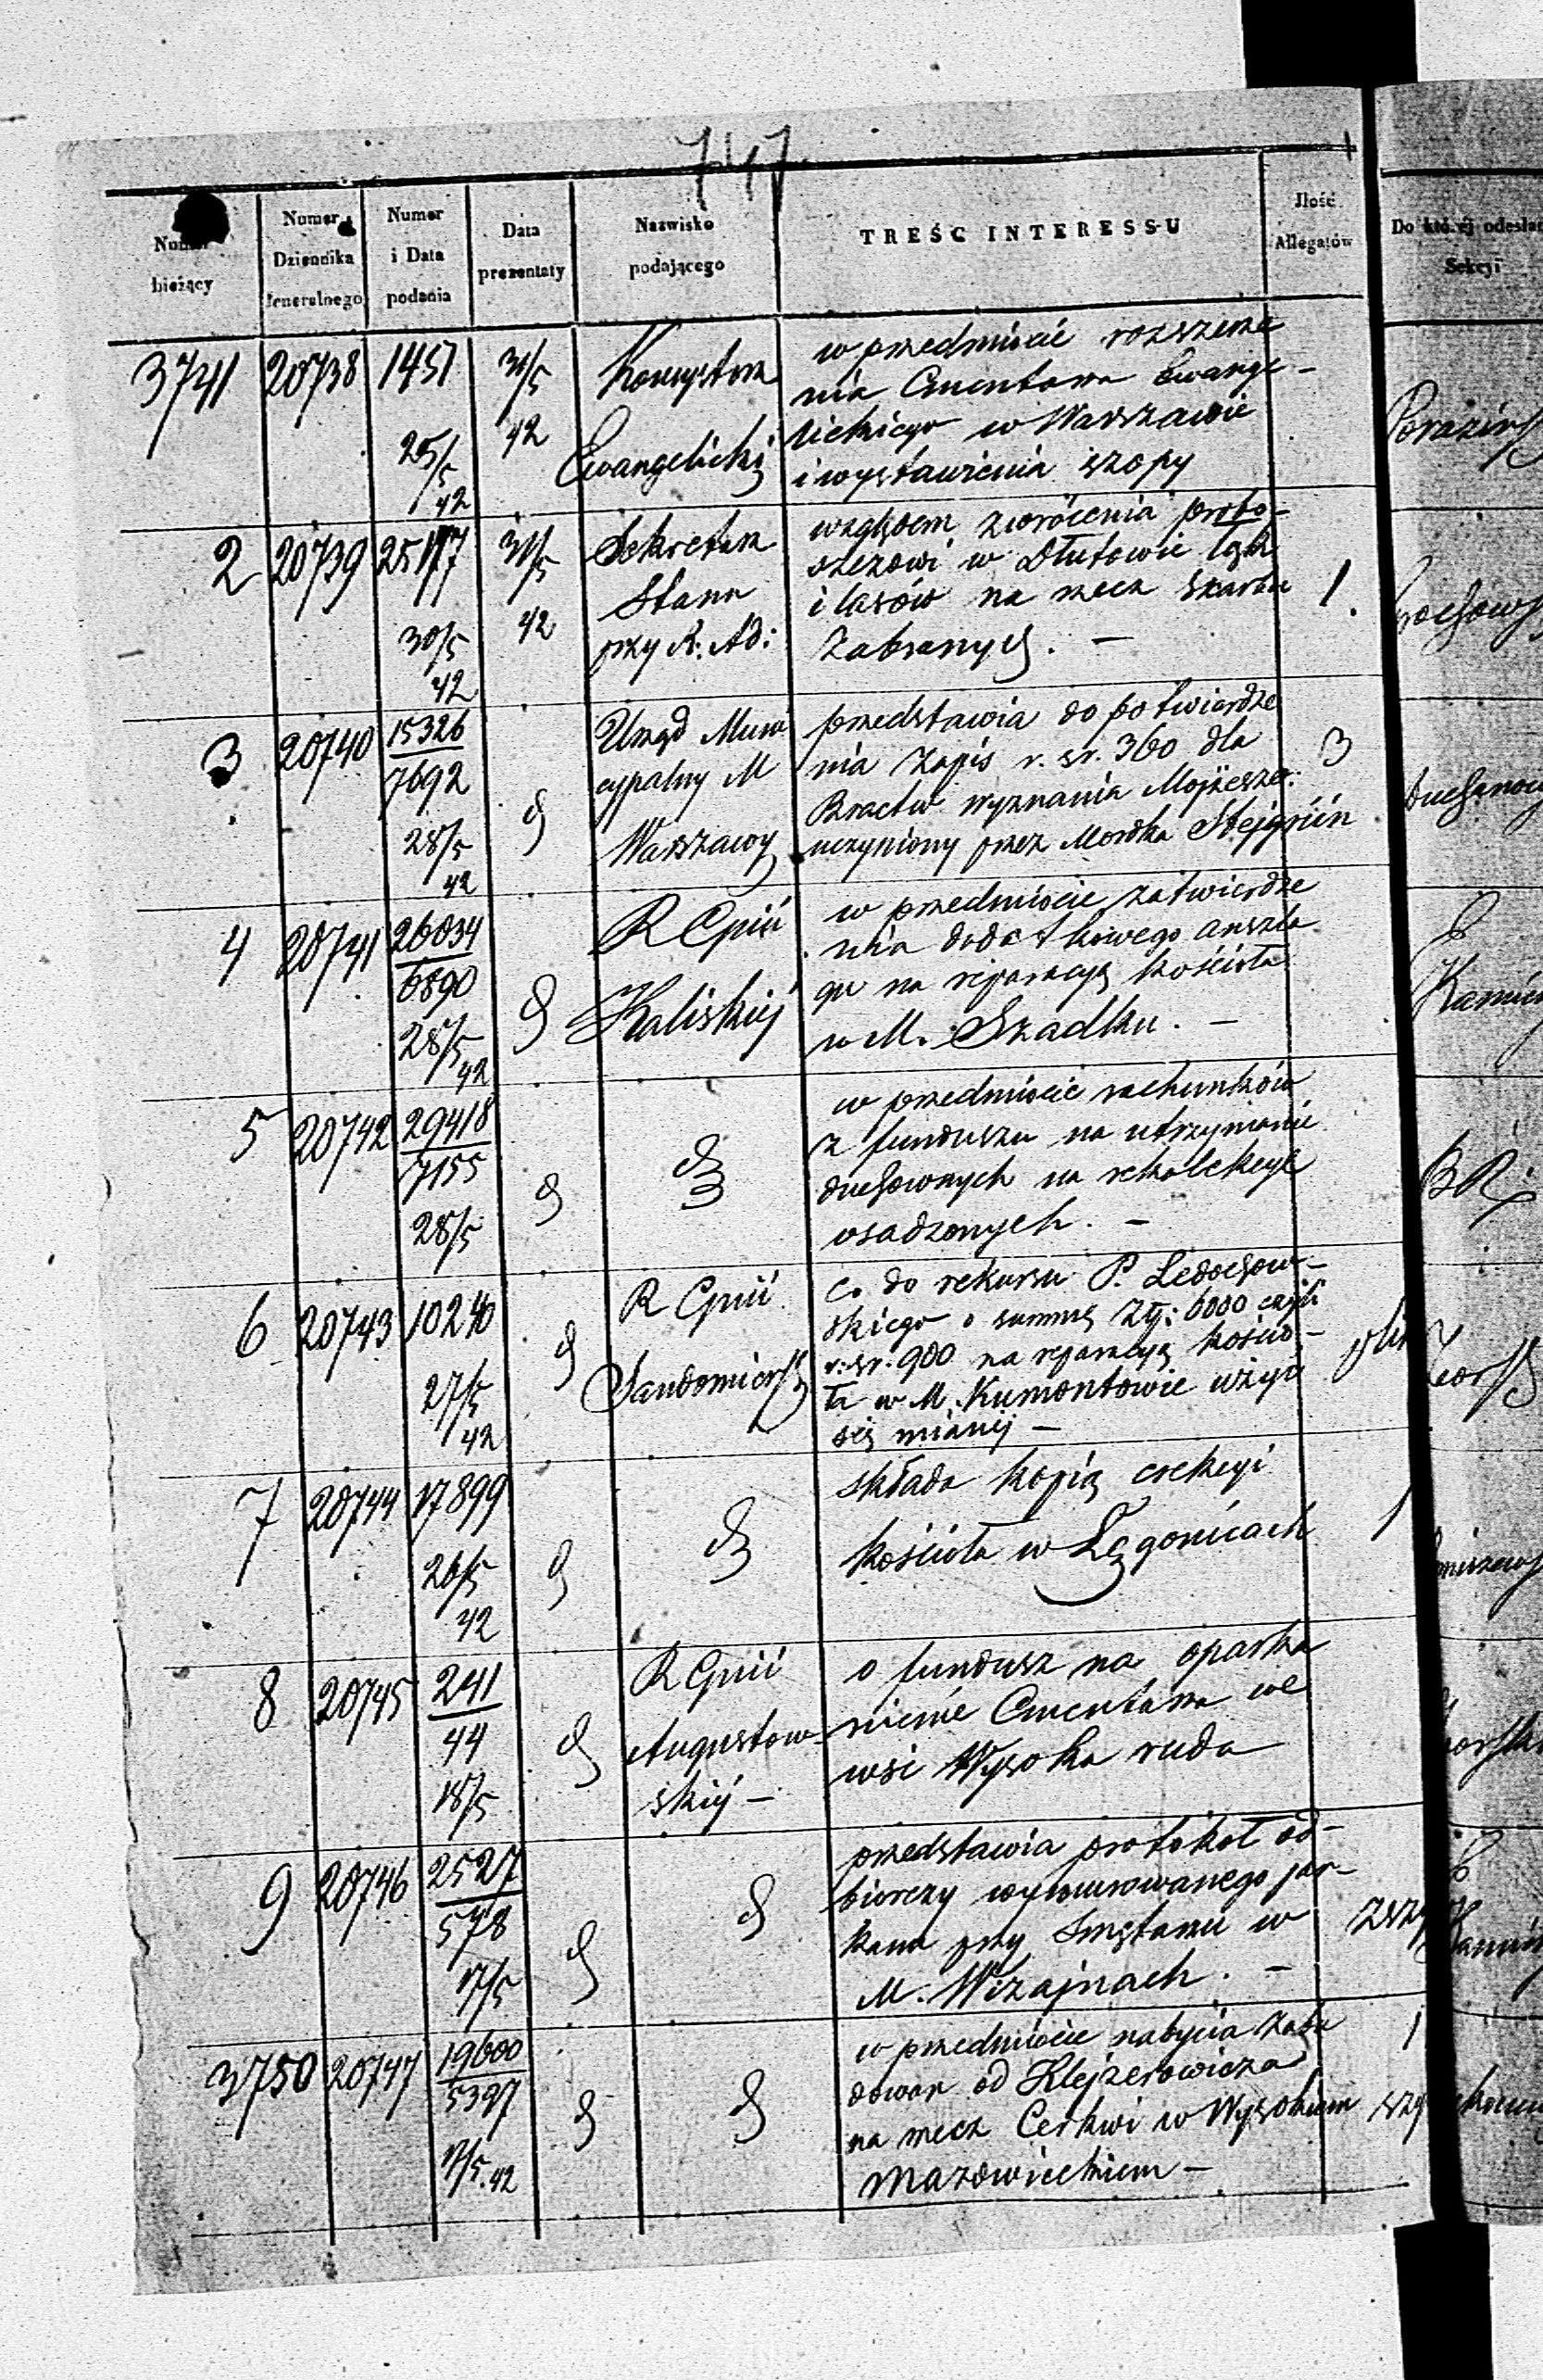 747
Numer bieżący
Numer Dziennika Jeneralnego
Numer i Data podania
Data prezentaty
Nazwisko podającego
TREŚC INTERESSU
Jlość Allegatów
Do któréj odesłan
Sekcyi
3741 20738 1451 25/5 42 31/5 42
Konsystorz
Ewangelicki
w przedmiocie rozszerze
nia Cmentarza Ewange-
lickiego w Warszawie
i wystawienia szopy
2 20739 25177 30/5 42 31/5 42
Sekretarz
Stanu
przy R. Ad:
względem zwrócenia probo-
szczowi w Dłutowie łąk
i lasów na rzecz skarbu
zabranych. —
1.
3 20740 15326 7692 28/5 42
Urząd Muni
cypalny M
Warszawy
przedstawia do potwierdze
nia zapis r. sr. 360 dla
Bractw wyznania Mojżeszo:
uczyniony przez Mordka
3
4 20741 26034 6890 28/5 42
R Gnii
Kaliskiej
w przedmiocie zatwierdze
nia dodatkowego anszla
gu na reparacyą kościoła
w M. Szadku. —
5 20742 29418 7155 28/5
w przedmiocie rachunków
z funduszu na utrzymanie
duchownych na rekolekcye
osadzonych. —
BR.
6 20743 10240 27/5 42
R Gnii
Sandomiersk
co do rekursu P. Ledochow-
skiego o summę Złp: 6000 czyli
r. sr. 900 na reparacyą kościo-
ła w M. Kumontowie użyć
się mianéj —
7 20744 17899 26/5 42
składa kopią erekcyi
kościoła w Łęgonicach
1
8 20745 241 44 18/5
R Gnii
Augustow-
skiéj —
o fundusz na oparka
nienie Cmentarza we
wsi Wysoka ruda
9 20746 2527 578 17/5
przedstawia protokół od-
biorczy wymurowanego par-
kanu przy Smętarzu w
M. Wiżajnach. —
3750 20747 19600 5397 17/5.42
w przedmiocie nabycia zabu
dowań od Klejzerowicza
na rzecz Cerkwi w Wysokiem
Mazowieckiem —
1